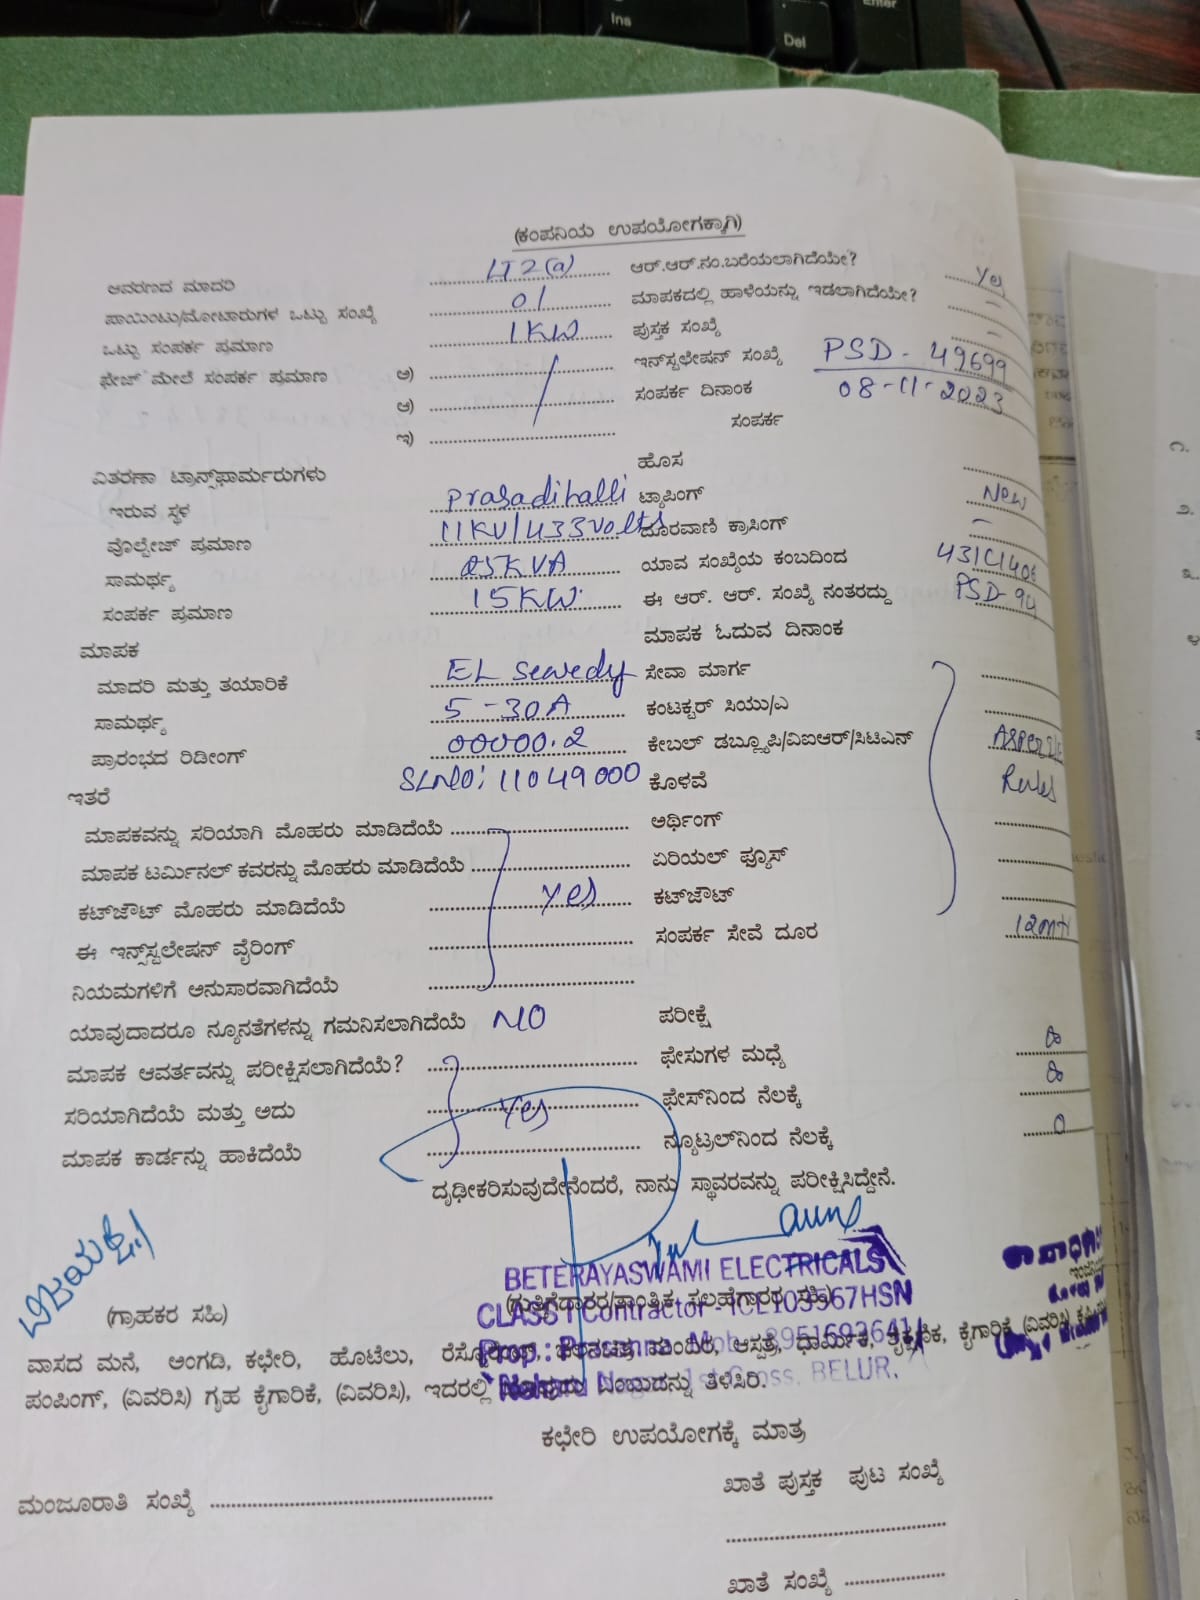 Ins
Del
Enter
(ಕಂಪನಿಯ ಉಪಯೋಗಕ್ಕಾಗಿ)
ಆವರಣದ ಮಾದರಿ LT2(a) ಆರ್.ಆರ್.ನಂ.ಬರೆಯಲಾಗಿದೆಯೇ? Yes
ಪಾಯಿಂಟು/ಮೋಟಾರುಗಳ ಒಟ್ಟು ಸಂಖ್ಯೆ 01 ಮಾಪಕದಲ್ಲಿ ಹಾಳೆಯನ್ನು ಇಡಲಾಗಿದೆಯೇ? -
ಒಟ್ಟು ಸಂಪರ್ಕ ಪ್ರಮಾಣ 1KW ಪುಸ್ತಕ ಸಂಖ್ಯೆ -
ಫೇಜ್ ಮೇಲೆ ಸಂಪರ್ಕ ಪ್ರಮಾಣ ಅ) ಇನ್‌ಸ್ಟಲೇಷನ್ ಸಂಖ್ಯೆ PSD-49699
ಆ) ಸಂಪರ್ಕ ದಿನಾಂಕ 08-11-2023
ಇ) ಸಂಪರ್ಕ
ವಿತರಣಾ ಟ್ರಾನ್ಸ್‌ಫಾರ್ಮರುಗಳು ಹೊಸ
ಇರುವ ಸ್ಥಳ Prasadihalli ಟ್ಯಾಪಿಂಗ್ New
ವೊಲ್ಟೇಜ್ ಪ್ರಮಾಣ 11KV/433volts ದೂರವಾಣಿ ಕ್ರಾಸಿಂಗ್ -
ಸಾಮರ್ಥ್ಯ 25KVA ಯಾವ ಸಂಖ್ಯೆಯ ಕಂಬದಿಂದ
ಸಂಪರ್ಕ ಪ್ರಮಾಣ 15KW ಈ ಆರ್. ಆರ್. ಸಂಖ್ಯೆ ನಂತರದ್ದು PSD-94
ಮಾಪಕ ಮಾಪಕ ಓದುವ ದಿನಾಂಕ
ಮಾದರಿ ಮತ್ತು ತಯಾರಿಕೆ EL Sewedy ಸೇವಾ ಮಾರ್ಗ
ಸಾಮರ್ಥ್ಯ 5-30A ಕಂಟಕ್ಟರ್ ಸಿಯು/ಎ
ಪ್ರಾರಂಭದ ರಿಡೀಂಗ್ 00000.2 ಕೇಬಲ್ ಡಬ್ಲ್ಯೂಪಿ/ವಿಐಆರ್/ಸಿಟಿಎನ್
ಇತರೆ SLNO: 11049000 ಕೊಳವೆ Rules
ಮಾಪಕವನ್ನು ಸರಿಯಾಗಿ ಮೊಹರು ಮಾಡಿದೆಯೆ ಅರ್ಥಿಂಗ್
ಮಾಪಕ ಟರ್ಮಿನಲ್ ಕವರನ್ನು ಮೊಹರು ಮಾಡಿದೆಯೆ ಏರಿಯಲ್ ಫ್ಯೂಸ್
ಕಟ್‌ಔಟ್ ಮೊಹರು ಮಾಡಿದೆಯೆ Yes ಕಟ್‌ಔಟ್
ಈ ಇನ್‌ಸ್ಟಲೇಷನ್ ವೈರಿಂಗ್ ಸಂಪರ್ಕ ಸೇವೆ ದೂರ
ನಿಯಮಗಳಿಗೆ ಅನುಸಾರವಾಗಿದೆಯೆ
ಯಾವುದಾದರೂ ನ್ಯೂನತೆಗಳನ್ನು ಗಮನಿಸಲಾಗಿದೆಯೆ NO ಪರೀಕ್ಷೆ
ಮಾಪಕ ಆವರ್ತವನ್ನು ಪರೀಕ್ಷಿಸಲಾಗಿದೆಯೆ? ಫೇಸುಗಳ ಮಧ್ಯೆ
ಸರಿಯಾಗಿದೆಯೆ ಮತ್ತು ಅದು Yes ಫೇಸ್‌ನಿಂದ ನೆಲಕ್ಕೆ
ಮಾಪಕ ಕಾರ್ಡನ್ನು ಹಾಕಿದೆಯೆ ನ್ಯೂಟ್ರಲ್‌ನಿಂದ ನೆಲಕ್ಕೆ 0
ದೃಢೀಕರಿಸುವುದೇನೆಂದರೆ, ನಾನು ಸ್ಥಾವರವನ್ನು ಪರೀಕ್ಷಿಸಿದ್ದೇನೆ.
BETERAYASWAMI ELECTRICALS
(ಗ್ರಾಹಕರ ಸಹಿ) (ಗುತ್ತಿಗೆದಾರರ/ತಾಂತ್ರಿಕ ಸಲಹೆಗಾರರ ಸಹಿ)
CLASS I Contractor
ವಾಸದ ಮನೆ, ಅಂಗಡಿ, ಕಛೇರಿ, ಹೊಟೆಲು, ಮಂದಿರ, ಆಸ್ಪತ್ರೆ, ಧಾರ್ಮಿಕ, ಕೈಗಾರಿಕೆ (ವಿವರಿಸಿ)
ಪಂಪಿಂಗ್, (ವಿವರಿಸಿ) ಗೃಹ ಕೈಗಾರಿಕೆ, (ವಿವರಿಸಿ), ಇದರಲ್ಲಿ ತಿಳಿಸಿರಿ.
BELUR.
ಕಛೇರಿ ಉಪಯೋಗಕ್ಕೆ ಮಾತ್ರ
ಮಂಜೂರಾತಿ ಸಂಖ್ಯೆ ಖಾತೆ ಪುಸ್ತಕ ಪುಟ ಸಂಖ್ಯೆ
ಖಾತೆ ಸಂಖ್ಯೆ